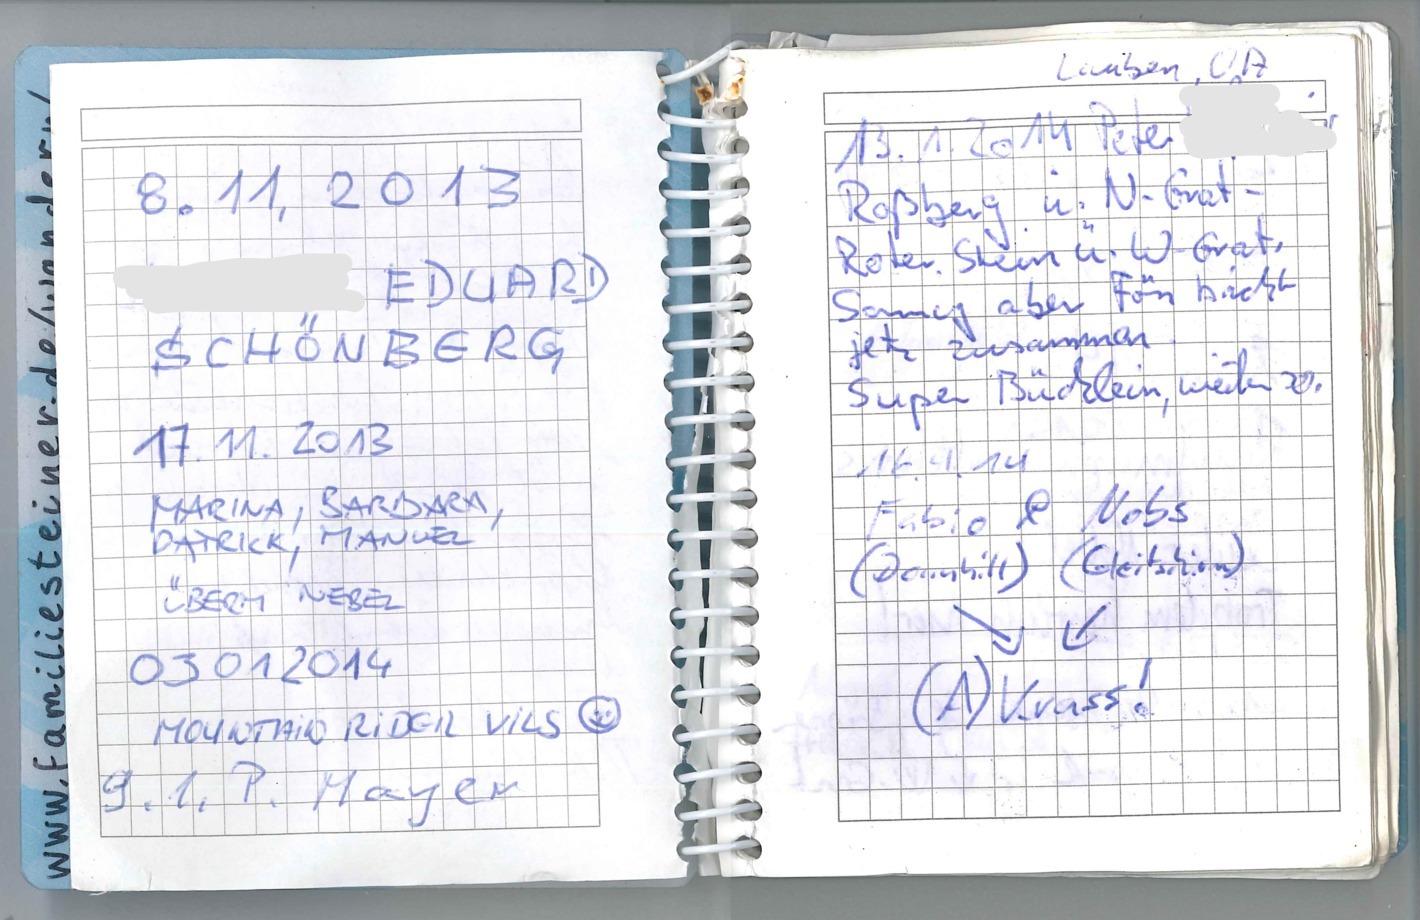 www.familiesteiner.de/wandern/
8.11.2013
EDUARD
SCHÖNBERG
17.11.2013
MARINA, BARBARA,
PATRICK, MANUEL
ÜBERM NEBEL
03012014
MOUNTAIN RIDER VILS
9.1. P. Mayer
Lauben, OA
13.1.2014 Peter
Roßberg ü. N-Grat-
Roter Stein ü. W-Grat.
Sonnig aber Fön
jetz zusammen.
Super Büchlein, weiter so.
14
Fabio & Nobs
(Downhill) (Gleitschirm)
(A) Krass!